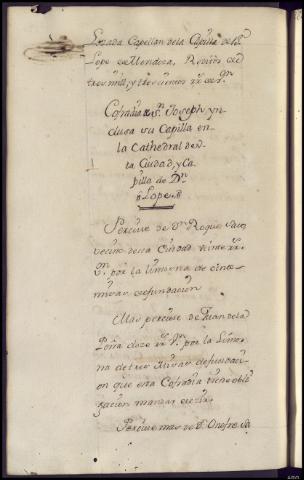 Lozada Capellan de la Capilla de Dn.
Lope de Mendoza, Reditos de
tres mill, y trescientos rs. de vn.
Cofradia de Sn. Joseph yn
clusa su Capilla en
la Cathedral des
ta Ciudad, y Ca
pilla de Dn.
Lope
Percive de Dn. Roque
vecino desta Ciudad veinte rs.
vn. por la limosna de cinco
misas de fundacion
Mas percive de Juan de la
Peña doze rs. vn. por la limos
na de tres Misas de fundacion
on que esta Cofradia tiene obli
gacion mandar decir.
Percive mas de Dn. Onofre